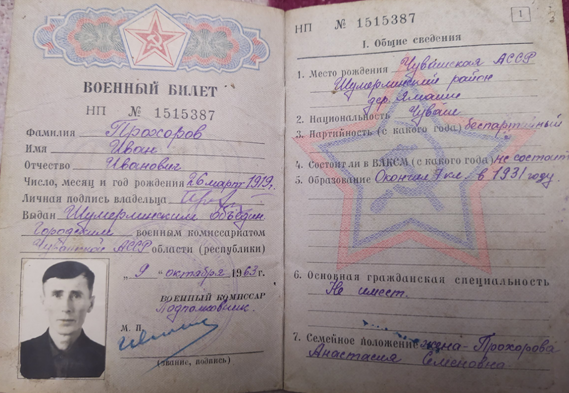 ВОЕННЫЙ БИЛЕТ
НП № 1515387
Фамилия Прохоров
Имя Иван
Отчество Иванович
Число, месяц и год рождения 26 март 1919г.
Личная подпись владельца
Выдан Шумерлинским объедин
Городским военным комиссариатом
Чувашской АССР области (республики)
„ 9 „ октября 1963 г.
ВОЕННЫЙ КОМИССАР
Подполковник
М. П.
(звание, подпись)
НП № 1515387
1
I. Общие сведения
1. Место рождения Чувашская АССР
Шумерлинский район
дер. Ямаши
2. Национальность Чуваш
3. Партийность (с какого года) беспартийный
4. Состоит ли в ВЛКСМ (с какого года) не состоит
5. Образование Окончил кл. в 1931 году
6. Основная гражданская специальность
Не имеет.
7. Семейное положение жена - Прохорова
Анастасия Семеновна